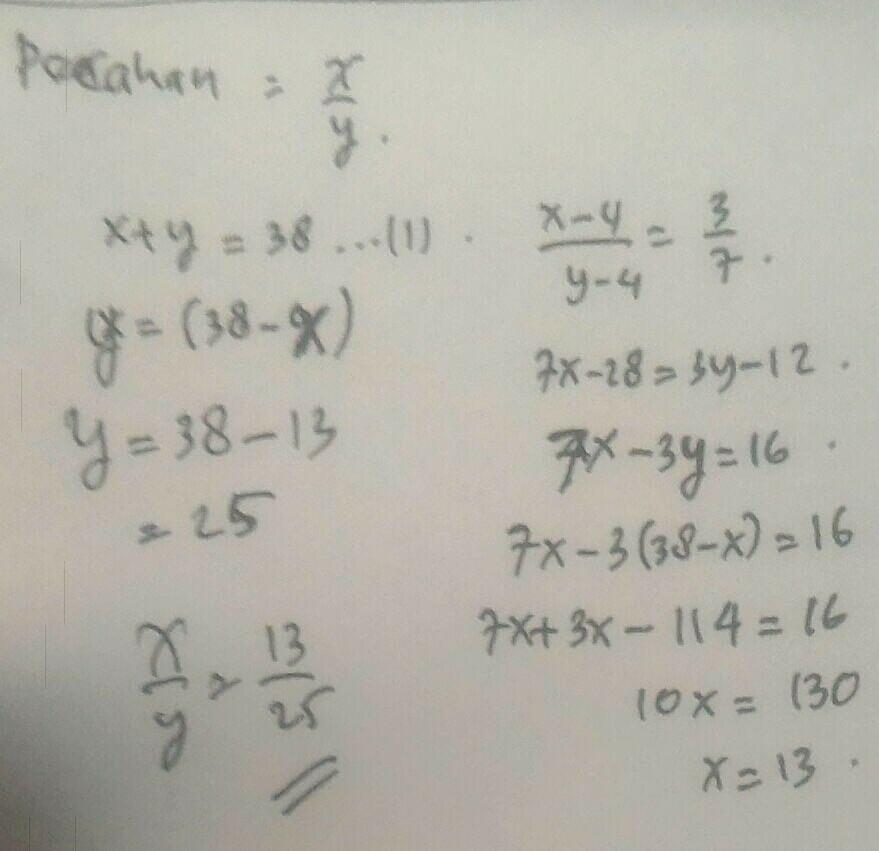 Pecahan = x/y.
x+y = 38 ...(1).
y = (38-x)
y = 38-13
= 25
x/y = 13/25
x-4/y-4 = 3/7.
7x-28 = 3y-12.
7x-3y = 16.
7x-3(38-x) = 16
7x+3x-114 = 16
10x = 130
x = 13.